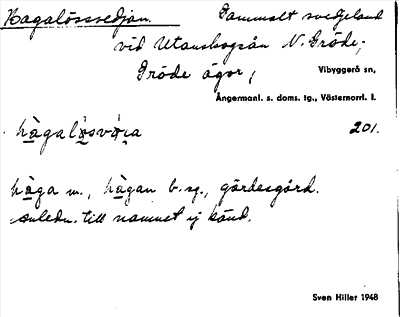 Hagalössvedjan. Gammalt svedjeland
vid Utanskogsån N. Gröde,
Gröde ägor,
Vibyggerå sn,
Ångermanl. s. doms. tg., Västernorrl. l.
201.
hàga m., hàgan b. sg., gärdesgård.
Anledn. till namnet ej känd.
Sven Hiller 1948